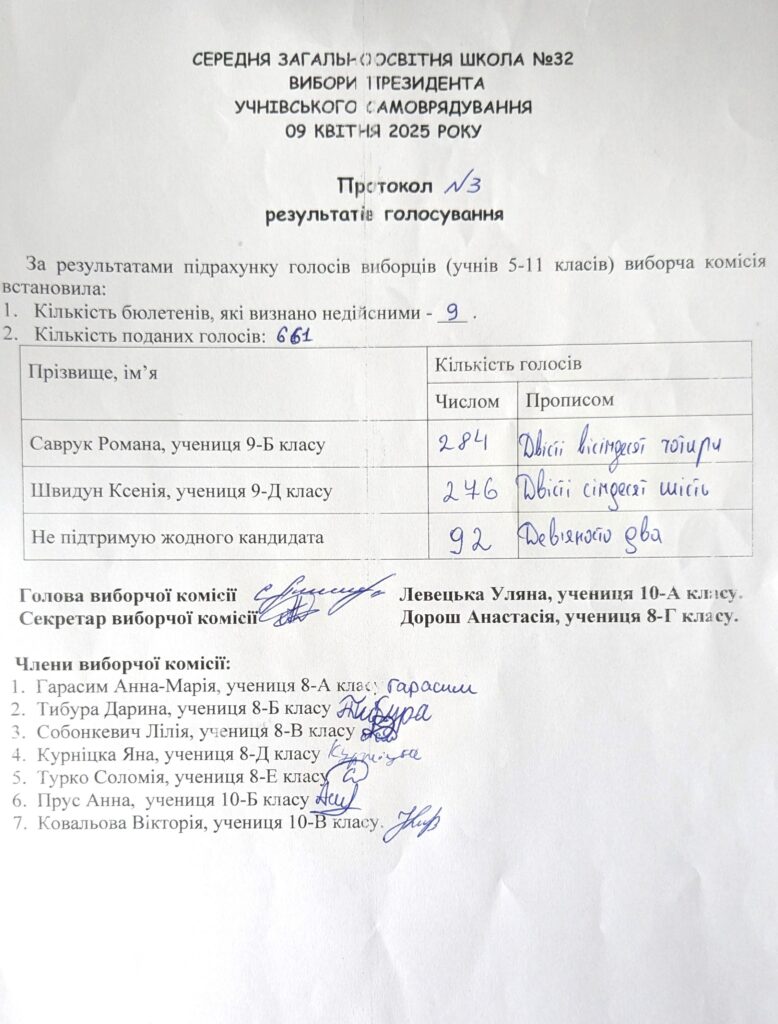 СЕРЕДНЯ ЗАГАЛЬНООСВІТНЯ ШКОЛА №32
ВИБОРИ ПРЕЗИДЕНТА
УЧНІВСЬКОГО САМОВРЯДУВАННЯ
09 КВІТНЯ 2025 РОКУ
Протокол №3
результатів голосування
За результатами підрахунку голосів виборців (учнів 5-11 класів) виборча комісія
встановила:
1. Кількість бюлетенів, які визнано недійсними - 9 .
2. Кількість поданих голосів: 661
Прізвище, ім’я Кількість голосів
Числом Прописом
Саврук Романа, учениця 9-Б класу 284 Двісті вісімдесят чотири
Швидун Ксенія, учениця 9-Д класу 276 Двісті сімдесят шість
Не підтримую жодного кандидата 92 Девяносто два
Голова виборчої комісії Левецька Уляна, учениця 10-А класу.
Секретар виборчої комісії Дорош Анастасія, учениця 8-Г класу.
Члени виборчої комісії:
1. Гарасим Анна-Марія, учениця 8-А класу Гарасим
2. Тибура Дарина, учениця 8-Б класу Тибура
3. Собонкевич Лілія, учениця 8-В класу
4. Курніцка Яна, учениця 8-Д класу Курніцка
5. Турко Соломія, учениця 8-Е класу
6. Прус Анна, учениця 10-Б класу
7. Ковальова Вікторія, учениця 10-В класу.